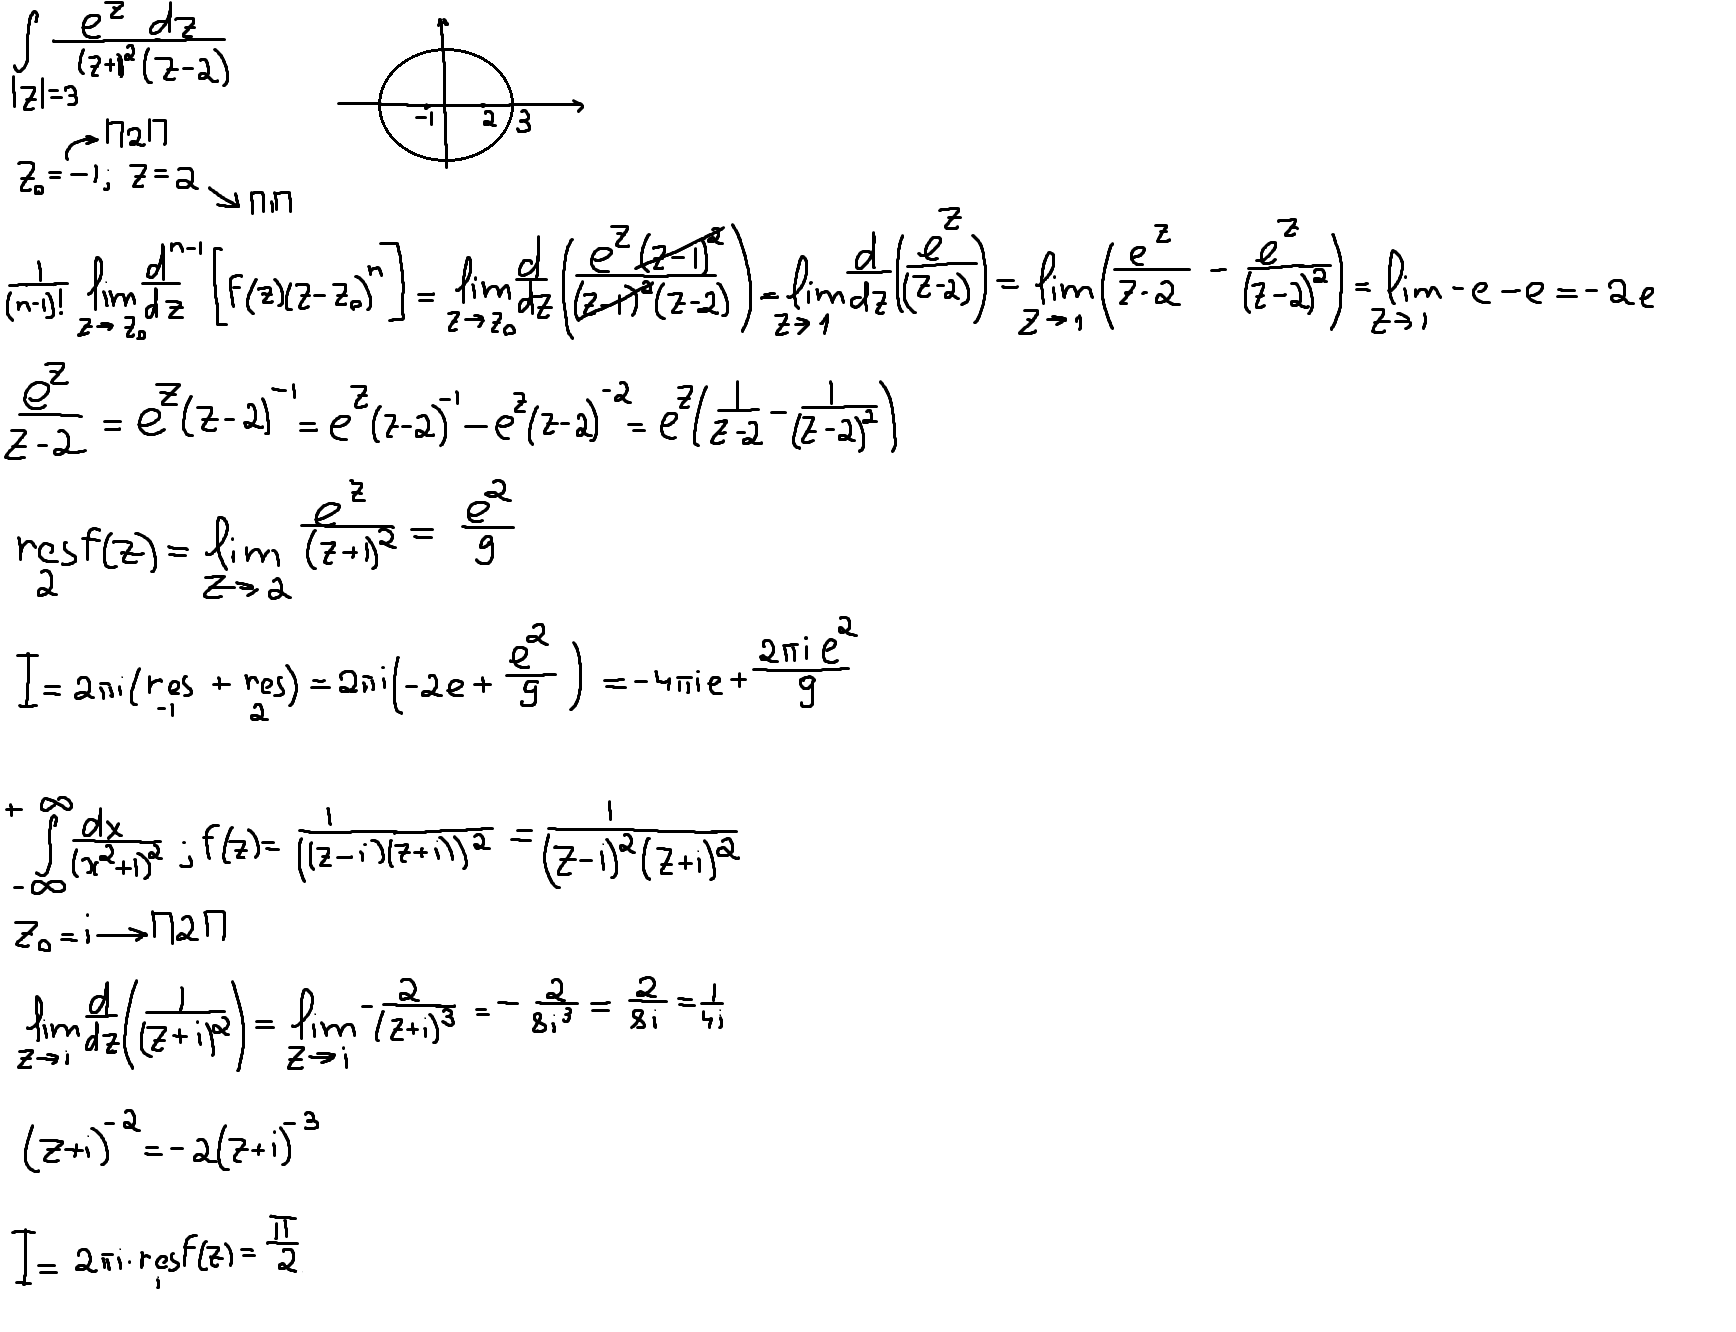 ∫_{|z|=3} e^z dz / ((z+1)^2 (z-2))
-1 2 3
→ П2П
z_0 = -1; z = 2
→ П1П
1/(n-1)! lim_{z→z_0} d^{n-1}/dz [f(z)(z-z_0)^n] = lim_{z→z_0} d/dz (e^z (z-1)^2 / ((z-1)^2 (z-2))) = lim_{z→1} d/dz (e^z / (z-2)) = lim_{z→1} (e^z / (z-2) - e^z / (z-2)^2) = lim_{z→1} -e-e = -2e
e^z / (z-2) = e^z (z-2)^{-1} = e^z (z-2)^{-1} - e^z (z-2)^{-2} = e^z (1/(z-2) - 1/(z-2)^2)
res_2 f(z) = lim_{z→2} e^z / (z+1)^2 = e^2 / 9
I = 2πi (res_{-1} + res_2) = 2πi (-2e + e^2/9) = -4πie + 2πi e^2 / 9
∫_{-∞}^{+∞} dx / (x^2+1)^2 ; f(z) = 1 / ((z-i)(z+i))^2 = 1 / ((z-i)^2 (z+i)^2)
z_0 = i → П2П
lim_{z→i} d/dz (1 / (z+i)^2) = lim_{z→i} - 2/(z+i)^3 = - 2/8i^3 = 2/8i = 1/4i
(z+i)^{-2} = -2(z+i)^{-3}
I = 2πi · res_i f(z) = π/2